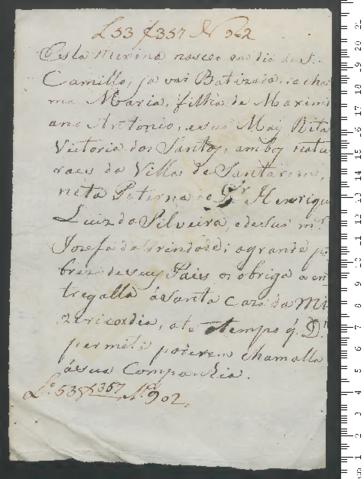 L 53 f 357 Nº 902
Esta Menina nasceo em dia de S.
Camillo, ja vai Batizada, e cha
ma Maria, filha de Maxim
ano Antonio, e sua Maj Rita
Victoria dos Santos, ambos natu
raes da Villa de Santarem,
neta Paterna o Dr Henrique
Luiz da Silveira, e de sua m.er
Josefa da trindade; a grande po
breza de seus Pais os obriga a en
tregalla á Santa Caza da Mi
zericordia, até o tempo q. D.s
permeti poderem chamalla
á sua Companhia.
L.º 53 f 357 Nº 902.